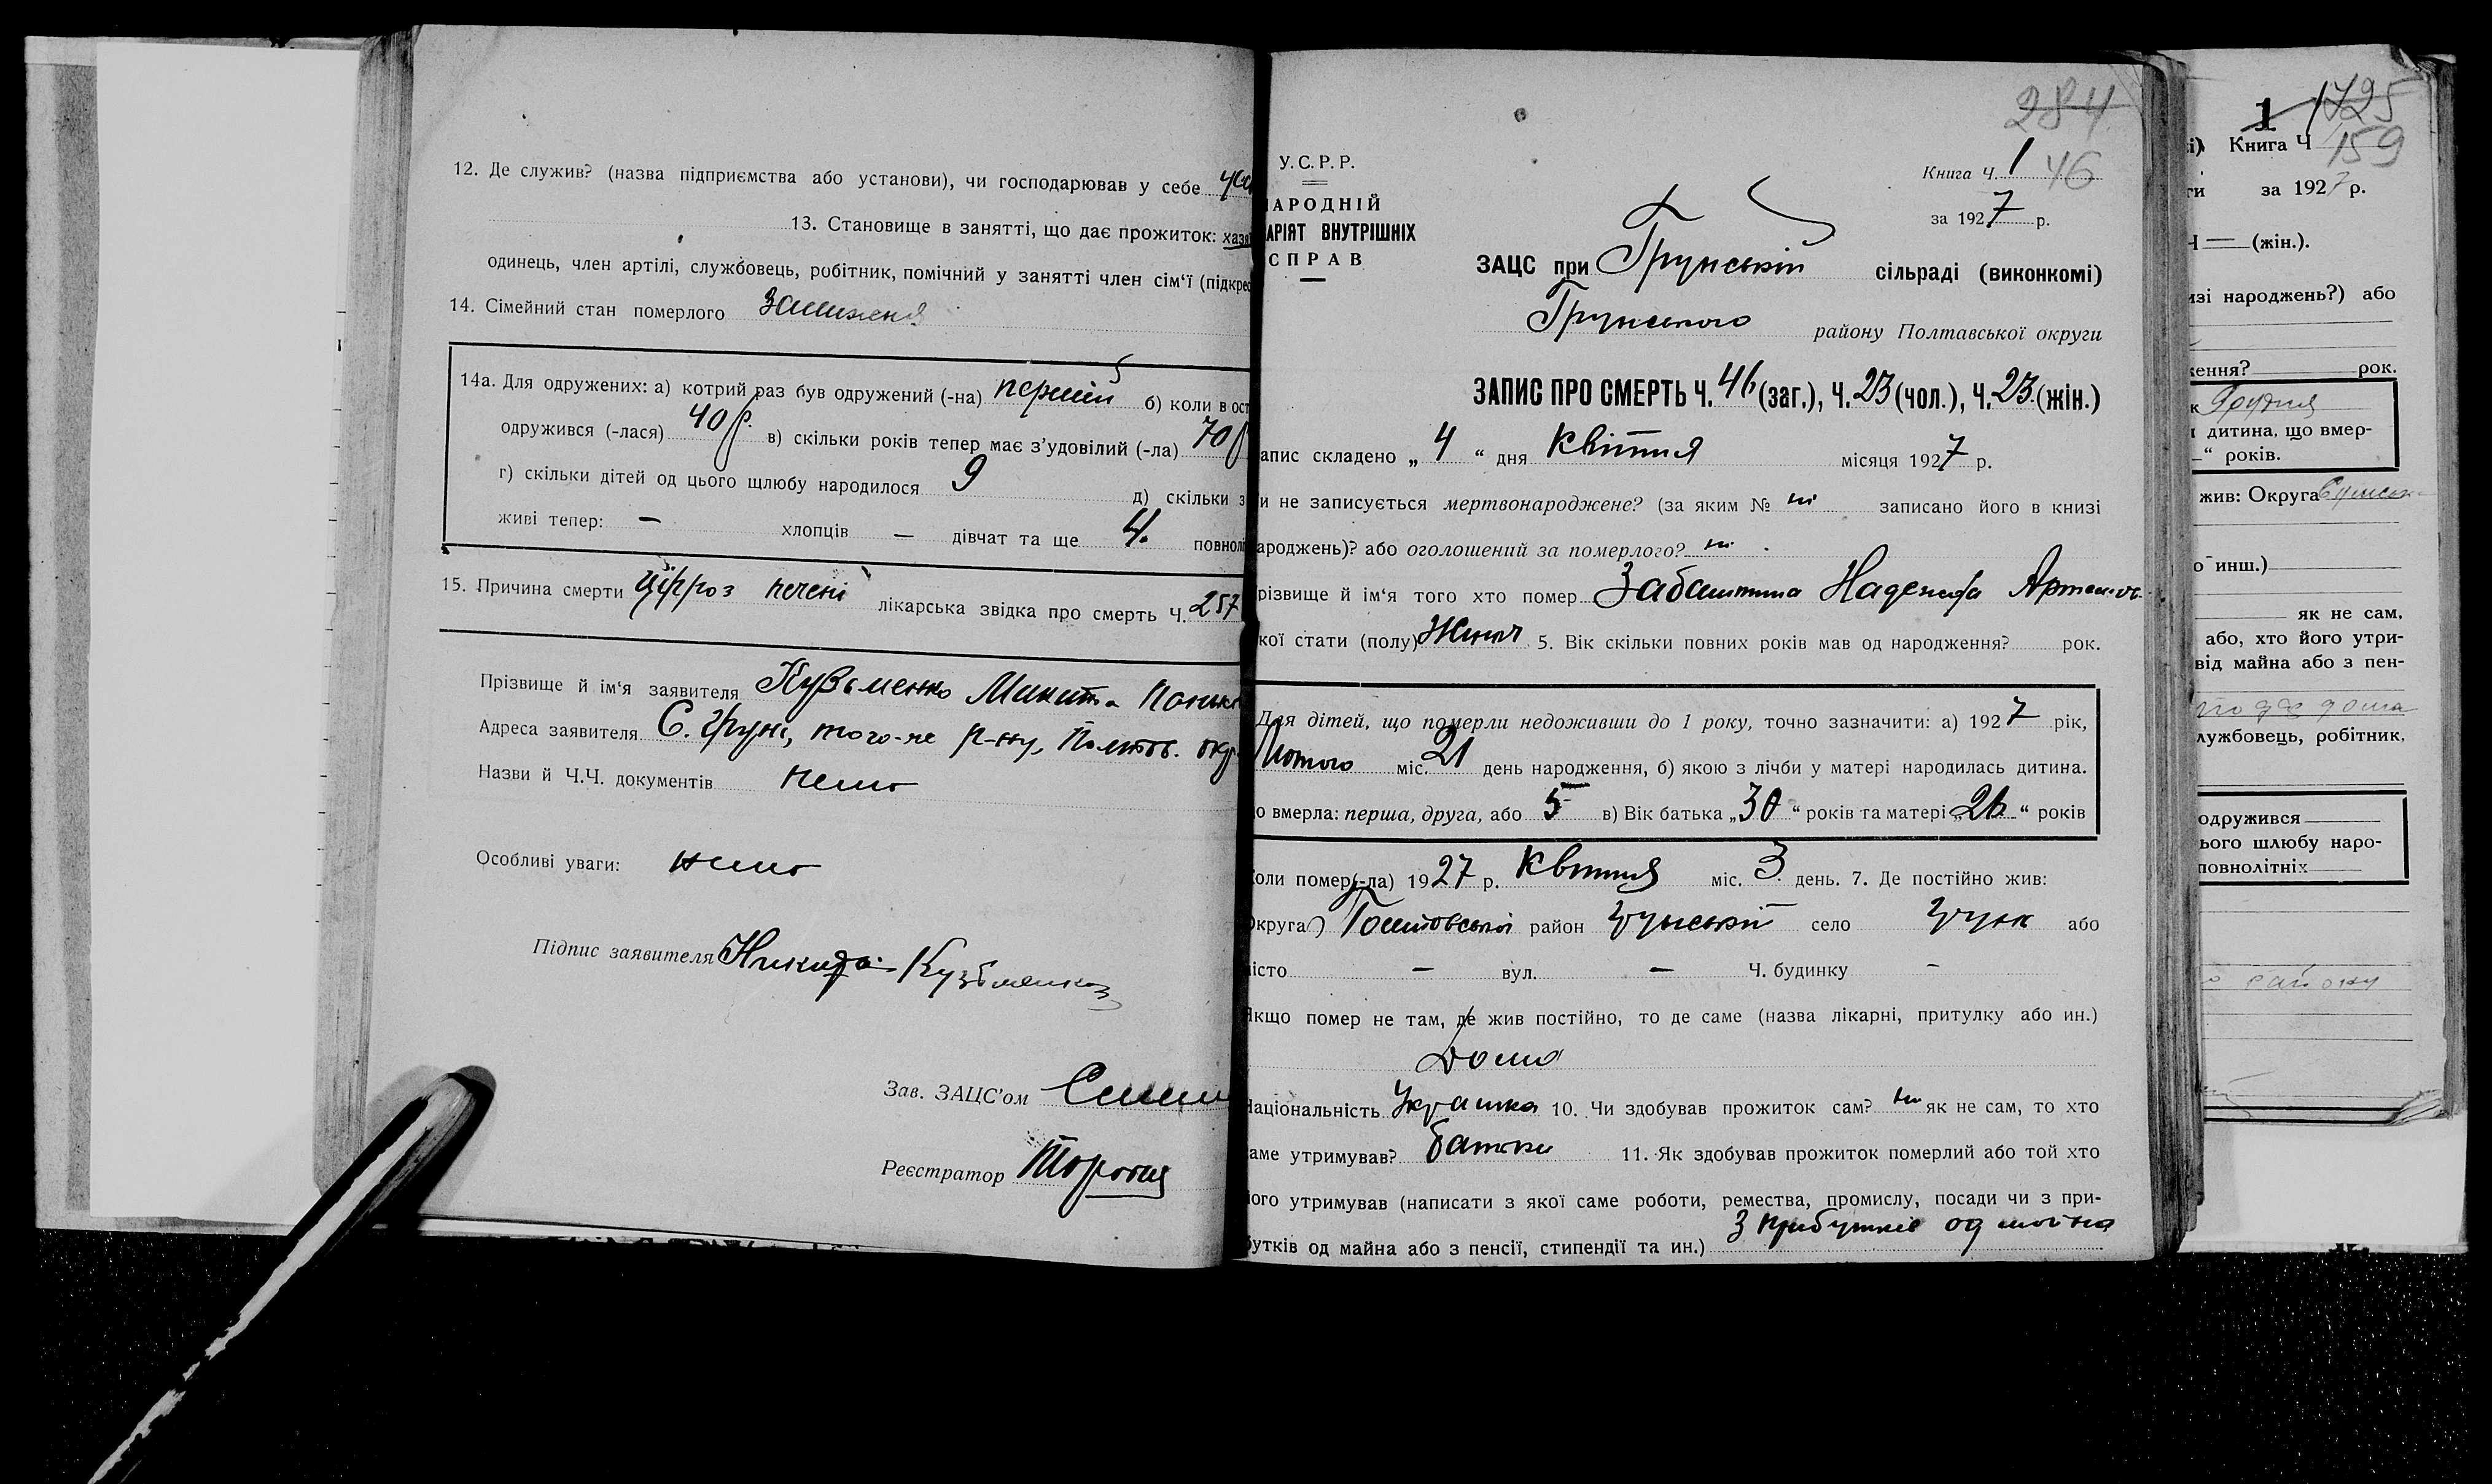 12. Де служив? (назва підприємства або установи), чи господарював у себе
13. Становище в занятті, що дає прожиток: хазя
одинець, член артілі, службовець, робітник, помічний у занятті член сім‘ї (підкрес
14. Сімейний стан померлого
14а. Для одружених: а) котрий раз був одружений (-на) перший б) коли в ост
одружився (-лася) 40 р. в) скільки років тепер має з’удовілий (-ла) 70 р
г) скільки дітей од цього щлюбу народилося 9 д) скільки з
живі тепер: — хлопців — дівчат та ще 4. повнолі
15. Причина смерти цірроз печені лікарська звідка про смерть Ч. 257
Прізвище й ім‘я заявителя Кузьменко Микита
Адреса заявителя С. Грунь, того-же р-ну, Полтов. окр.
Назви й Ч.Ч. документів нема
Особливі уваги: нема
Підпис заявителя Никита Кузьменко
Зав. ЗАЦС’ом
Реєстратор
284
У.С.Р.Р.
Книга Ч. 1 46
АРОДНІЙ
АРІЯТ ВНУТРІШНІХ
СПРАВ
за 1927 р.
ЗАЦС при Грунській сільраді (виконкомі)
Грунського району Полтавської округи
ЗАПИС ПРО СМЕРТЬ Ч. 46 (заг.), Ч. 23 (чол.), Ч. 23 (жін.)
апис складено „ 4 “ дня Квітня місяця 1927 р.
и не записується мертвонароджене? (за яким № ні записано його в книзі
ароджень)? або оголошений за померлого? ні.
різвище й ім‘я того хто помер Забаштина Надежда Артемов.
кої стати (полу) Жіноч 5. Вік скільки повних років мав од народження? рок.
Для дітей, що померли недоживши до 1 року, точно зазначити: а) 1927 рік,
Лютого міс. 21 день народження, б) якою з лічби у матері народилась дитина.
о вмерла: перша, друга, або 5 в) Вік батька „ 30 “ років та матері „ 26 “ років
оли помер(-ла) 1927 р. Квітня міс. 3 день. 7. Де постійно жив:
круга) Полтовської район Грунський село Грунь або
істо — вул. — Ч. будинку —
кщо помер не там, де жив постійно, то де саме (назва лікарні, притулку або ин.)
Дома
аціональність Українка 10. Чи здобував прожиток сам? ні як не сам, то хто
аме утримував? батьки 11. Як здобував прожиток померлий або той хто
ого утримував (написати з якої саме роботи, ремества, промислу, посади чи з при-
бутків од майна або з пенсії, стипендії та ин.) З прибутків од майна
1 1725
Книга Ч 159
за 1927 р.
(жін.).
зі народжень?) або
ження? рок.
Грудня
дитина, що вмер-
“ років.
жив: Округа Сумськ
о инш.)
як не сам,
або, хто його утри-
від майна або з пен-
лужбовець, робітник,
одружився
ього шлюбу наро-
повнолітніх
району